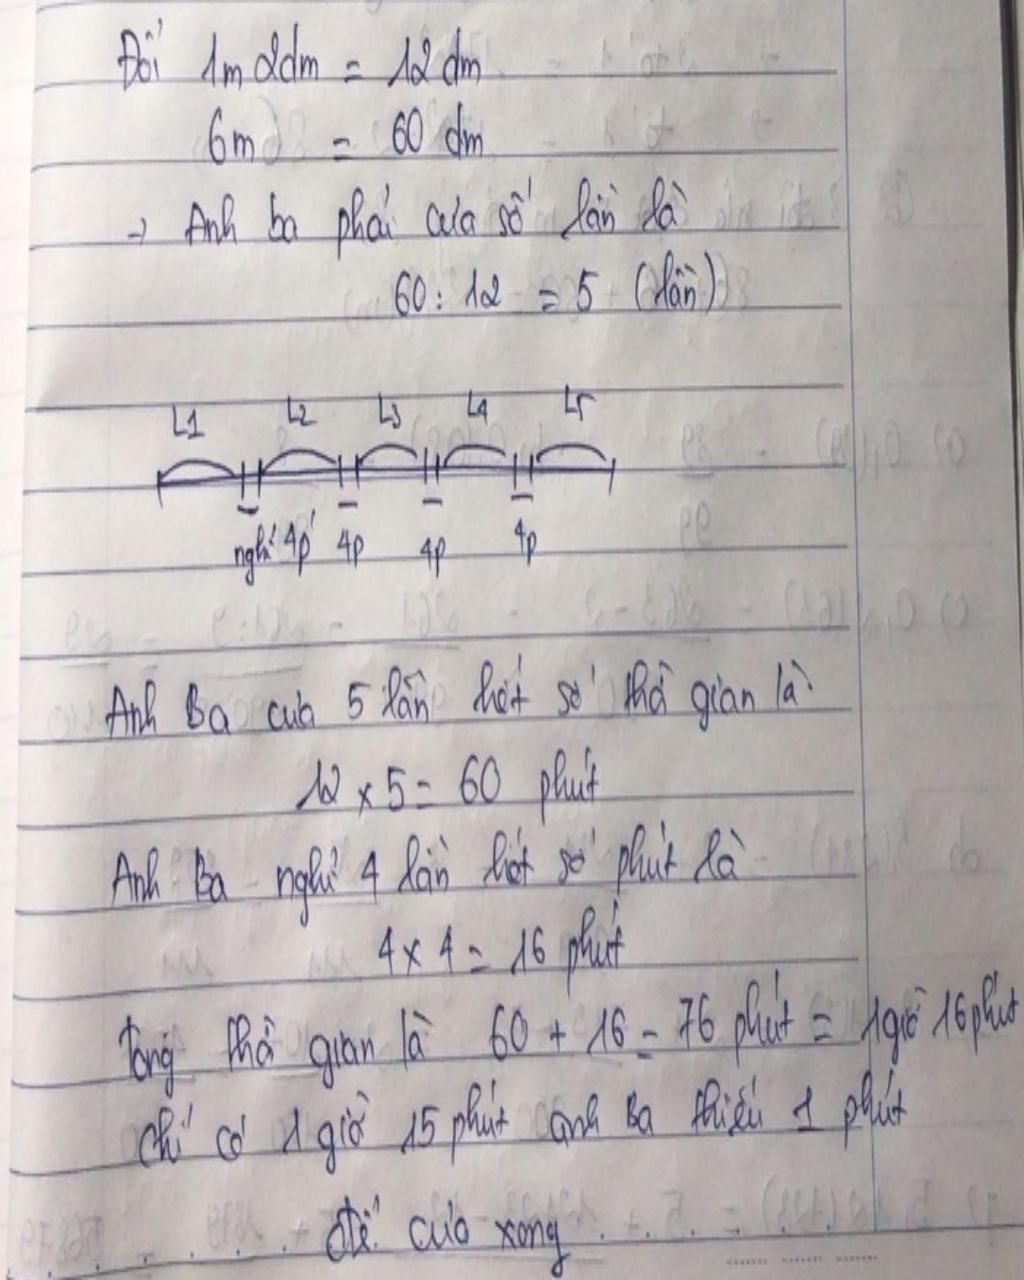 Đổi 1m 2dm = 12 dm
6m = 60 dm
→ Anh ba phải cưa số lần là
60 : 12 = 5 (lần)
L1 L2 L3 L4 L5
nghỉ 4p' 4p 4p 4p
Anh Ba cưa 5 lần hết số thờ gian là
12 x 5 = 60 phút
Anh Ba nghỉ 4 lần hết số phút là
4 x 4 = 16 phút
Tổng thờ gian là 60 + 16 = 76 phút = 1 giờ 16 phút
chỉ có 1 giờ 15 phút anh Ba thiếu 1 phút
để cưa xong